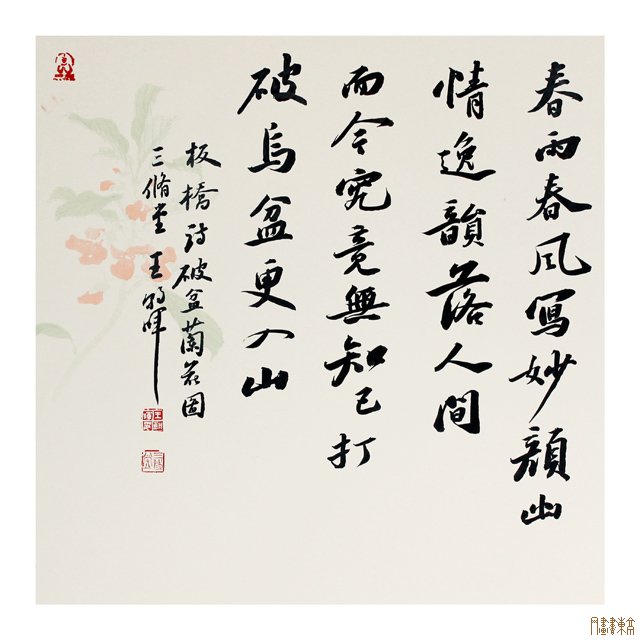 春雨春風寫妙顔幽
情逸韻落人間
而今究竟無知己打
破烏盆更入山
板橋詩破盆蘭花圖
三脩堂 王